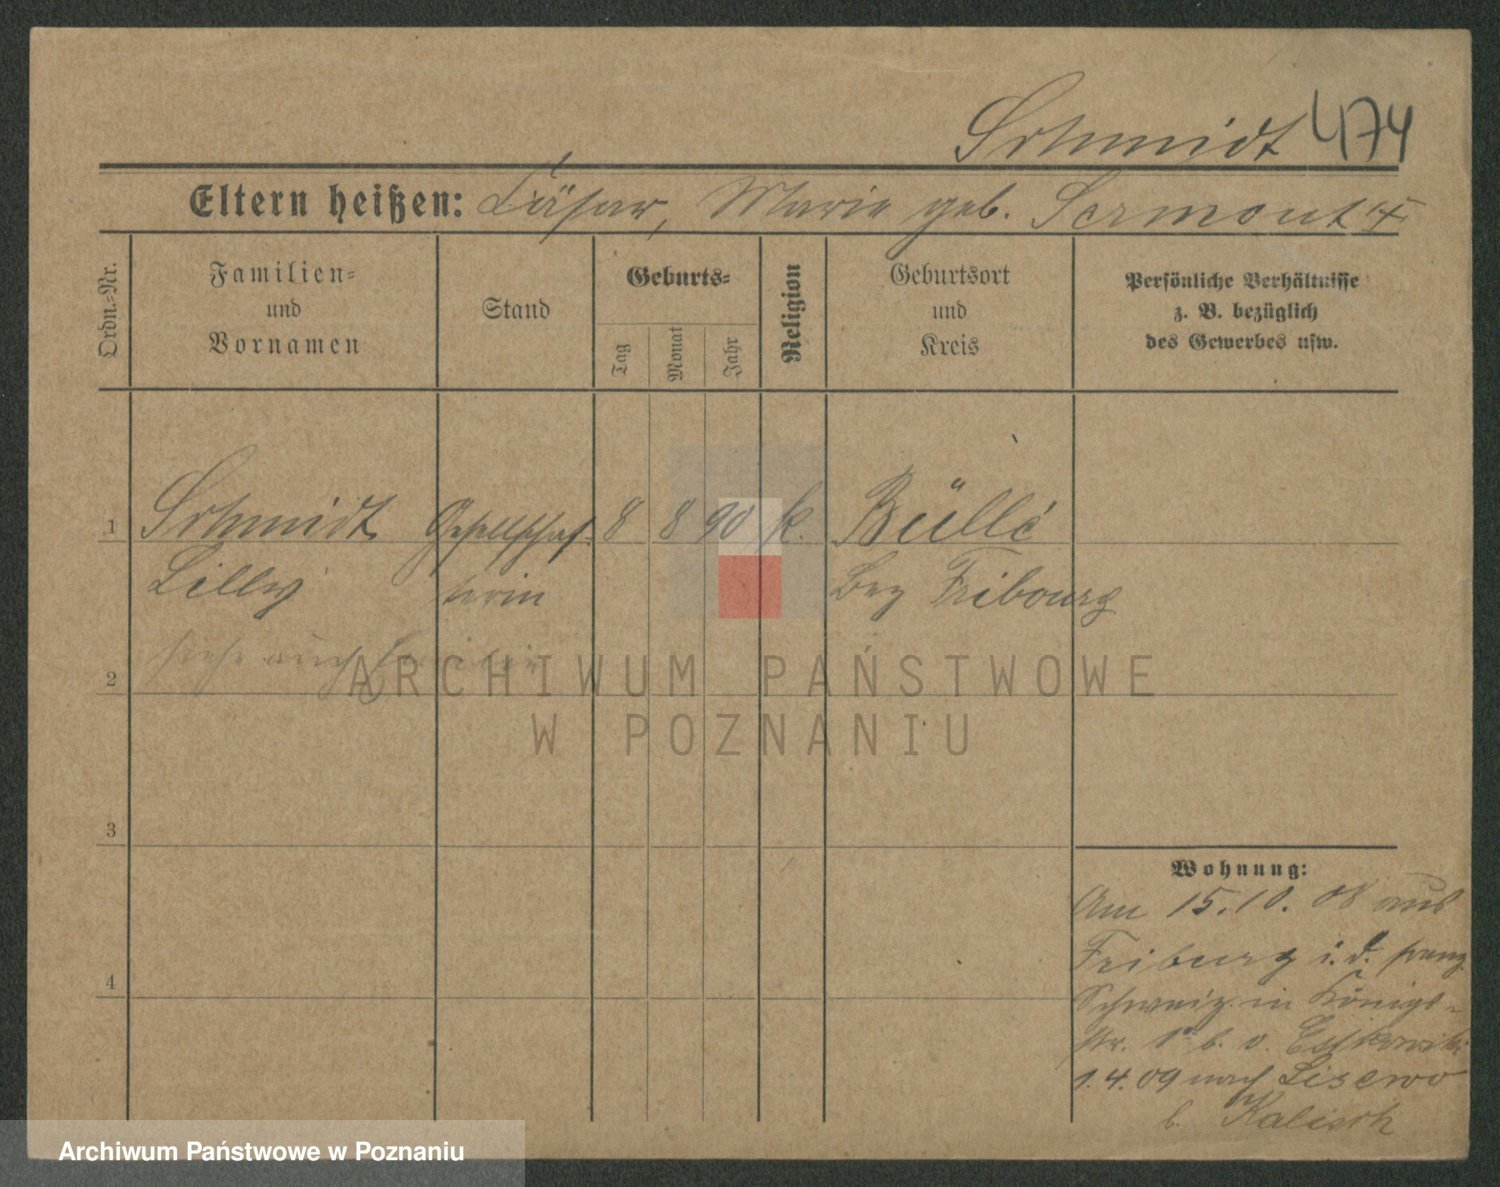 Schmidt 474
Eltern heißen: Cäsar, Marie geb. Sermout
Ordn.-Nr.
Familien-
und
Vornamen
Stand
Geburts-
Tag
Monat
Jahr
Religion
Geburtsort
und
Kreis
Persönliche Verhältnisse
z. B. bezüglich
des Gewerbes usw.
1 Schmidt Gesellschaf- 8 8 90 k. Büllé
Lilly terin Bez Fribourg
siehe auch
2
3
4
Wohnung:
Am 15.10.08 aus
Friburg i.d. franz.
Schweiz in Königs-
str. b. v.
1.4.09 nach Lisewo
b. Kalisch
ARCHIWUM PAŃSTWOWE
W POZNANIU
Archiwum Państwowe w Poznaniu